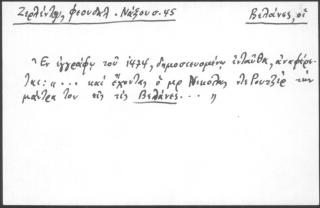 Ζερλέντη, Φεουδαλ. Νάξου σ. 45
Βελάνες, οἱ
Ἐν ἐγγράφῳ τοῦ 1474, δημοσιευομένῳ ἐνταῦθα, ἀναφέρε-
ται: "... καὶ ἔχοντας ὁ μρ Νικολὸς ντε τὴν
μάντρα του εἰς τὶς Βελάνες ... "